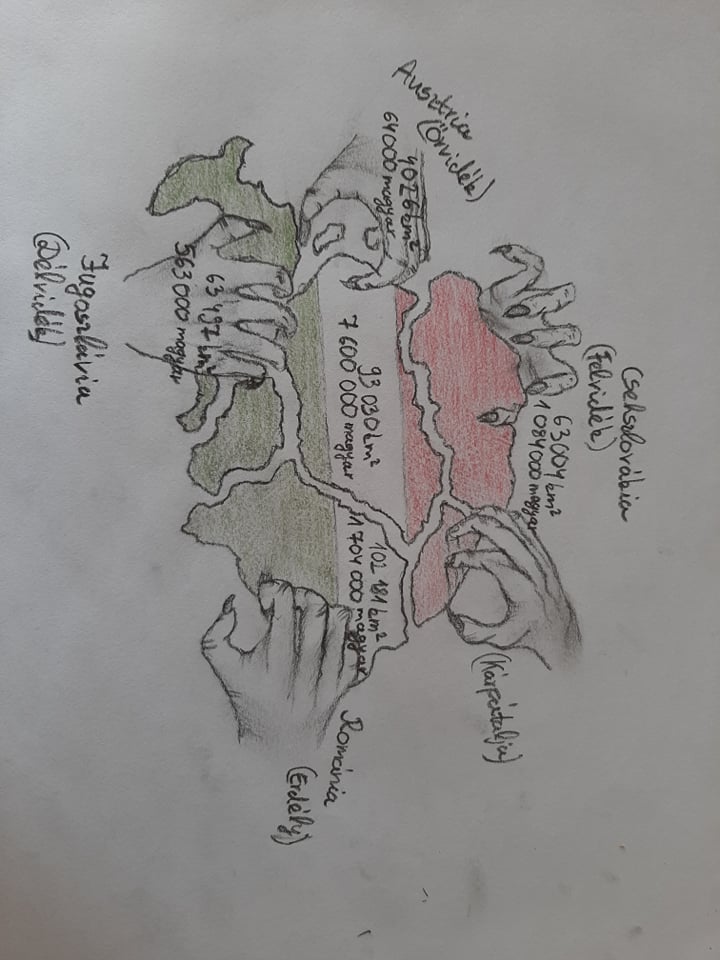 Ausztria
(Őrvidék)
4026 km²
64000 magyar
Csehszlovákia
(Felvidék)
63004 km²
1 084000 magyar
(Kárpátalja)
93 030 km²
7 600 000 magyar
102 181 km²
1 704 000 magyar
Románia
(Erdély)
63497 km²
563000 magyar
Jugoszlávia
(Délvidék)